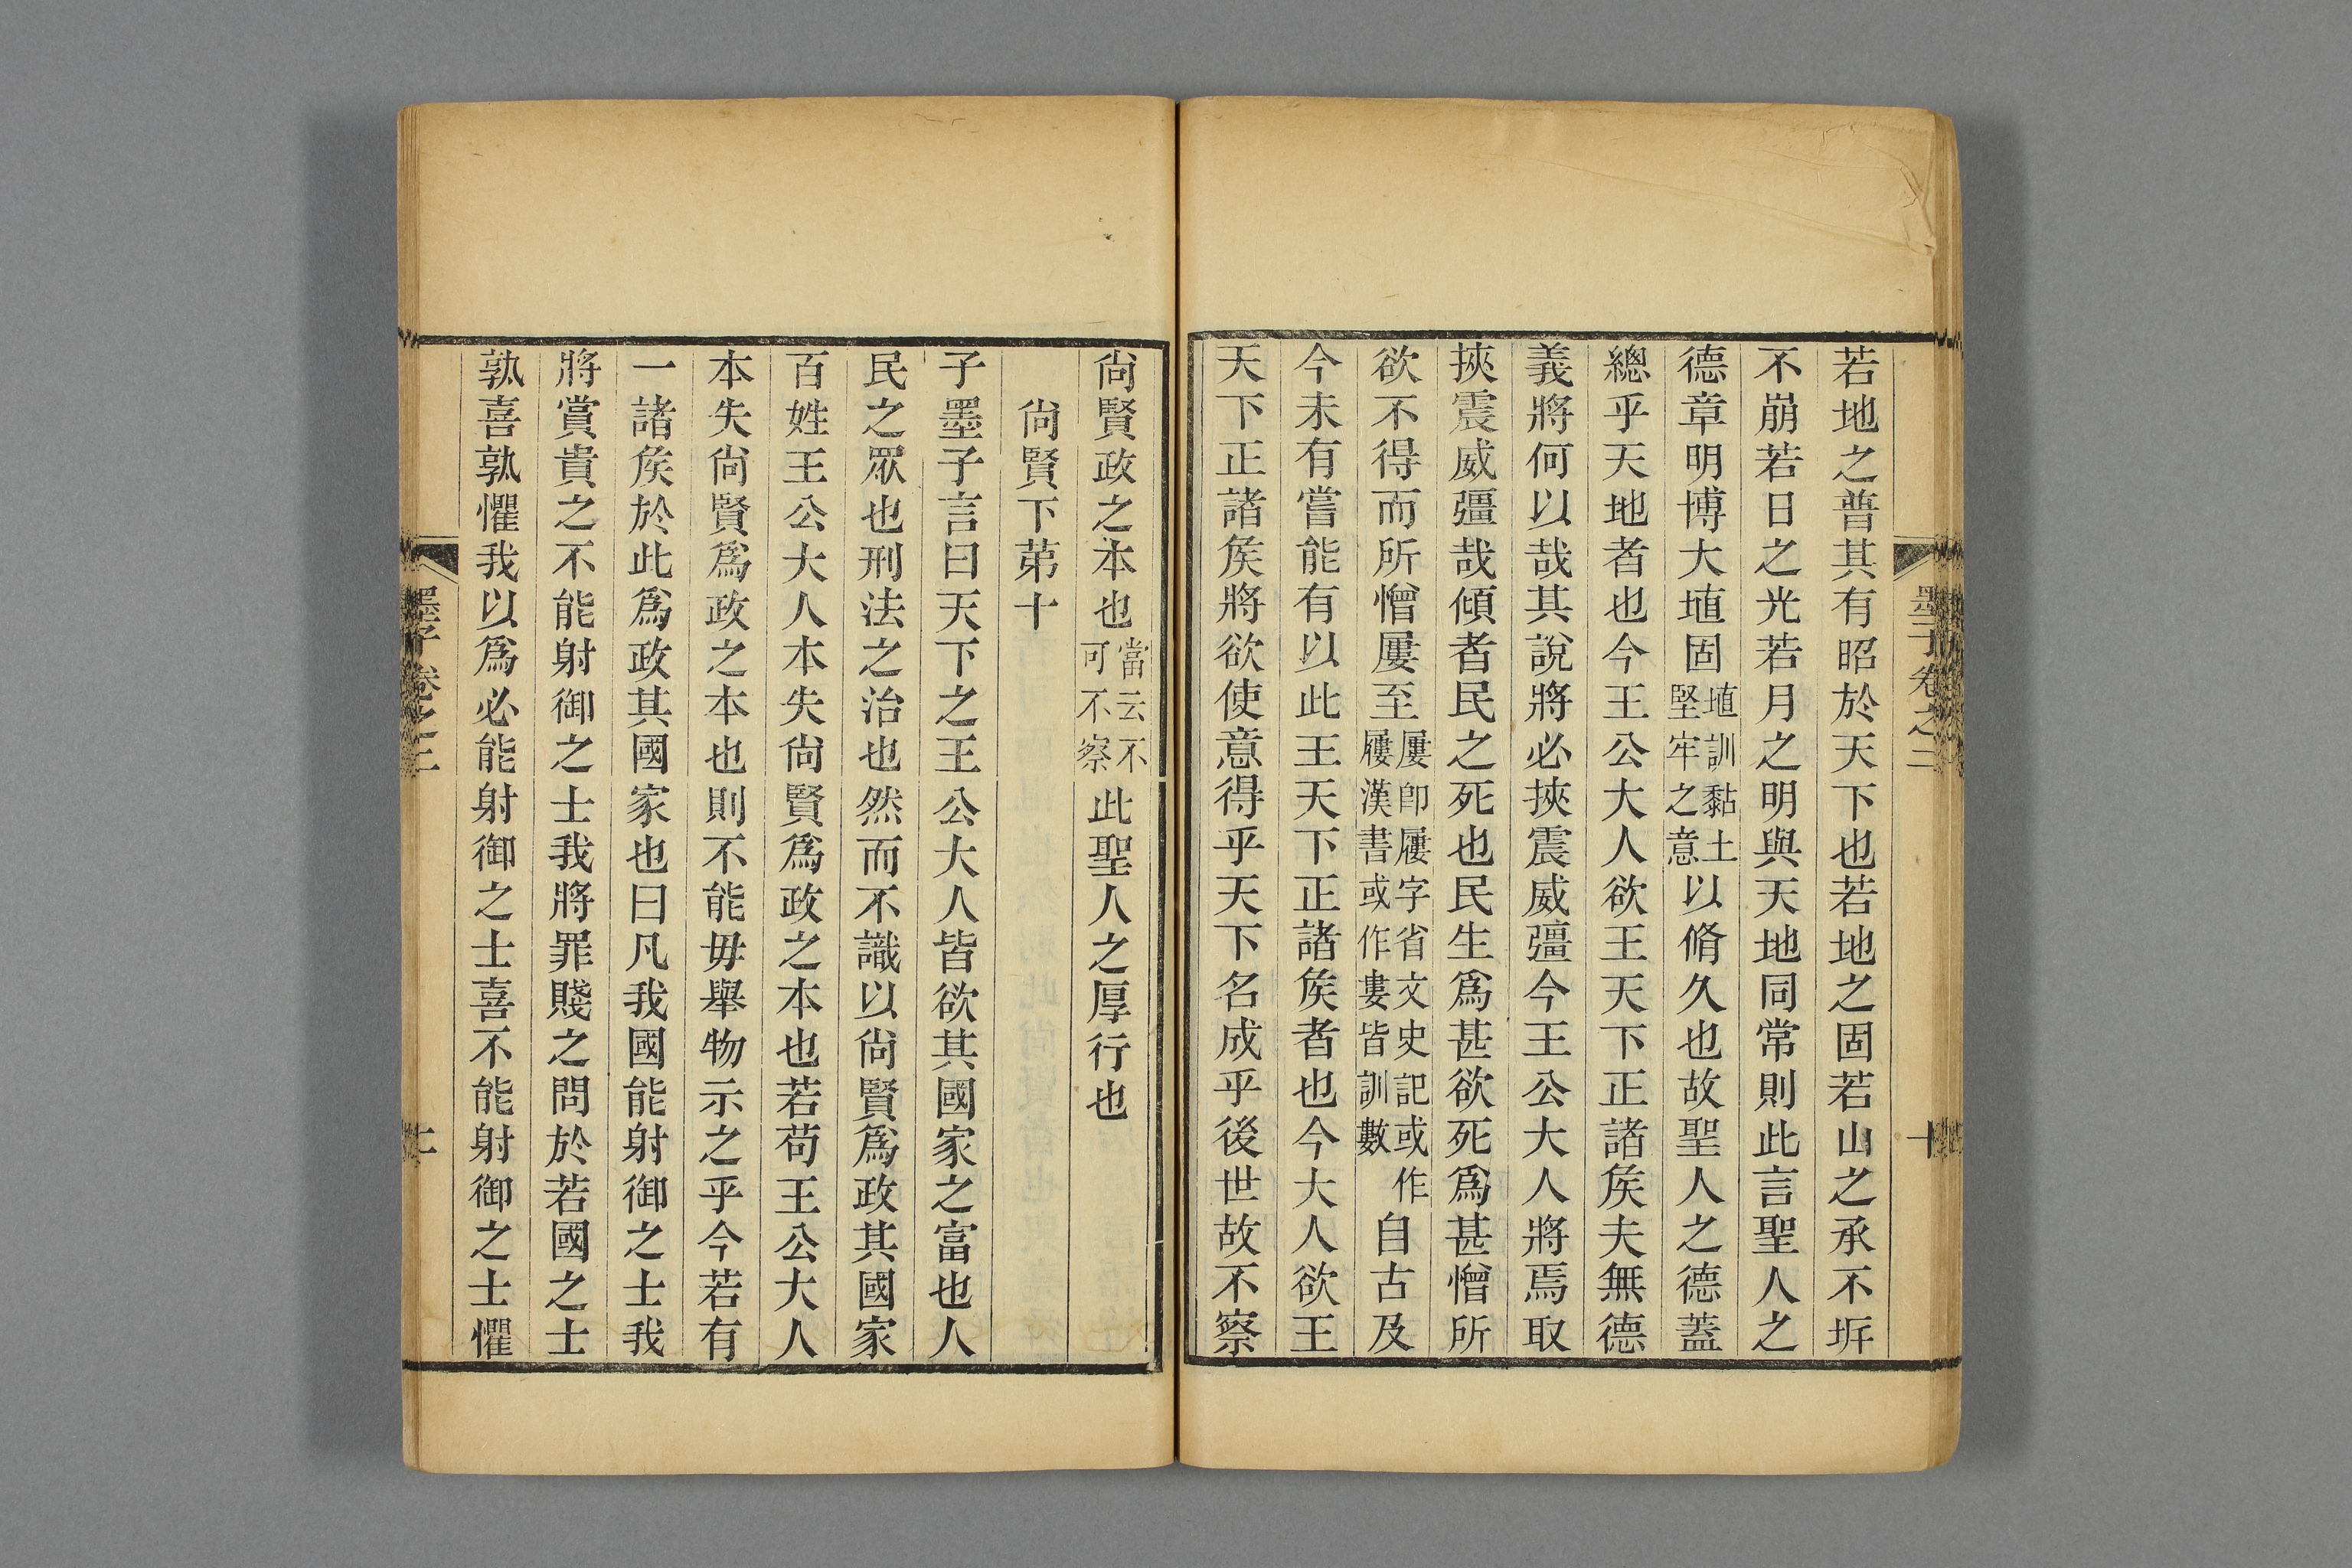 若地之普其有昭於天下也若地之固若山之承不坼
不崩若日之光若月之明與天地同常則此言聖人之
德章明博大埴固埴訓黏土堅牢之意以脩久也故聖人之德蓋
總乎天地者也今王公大人欲王天下正諸矦夫無德
義將何以哉其說將必挾震威彊今王公大人將焉取
挾震威彊哉傾者民之死也民生爲甚欲死爲甚憎所
欲不得而所憎屢至屢卽屨字省文史記或作屨漢書或作婁皆訓數自古及
今未有嘗能有以此王天下正諸矦者也今大人欲王
天下正諸矦將欲使意得乎天下名成乎後世故不察
尙賢政之本也當云不可不察此聖人之厚行也
尙賢下苐十
子墨子言曰天下之王公大人皆欲其國家之富也人
民之眾也刑法之治也然而不識以尙賢爲政其國家
百姓王公大人本失尙賢爲政之本也若苟王公大人
本失尙賢爲政之本也則不能毋舉物示之乎今若有
一諸矦於此爲政其國家也曰凡我國能射御之士我
將賞貴之不能射御之士我將罪賤之問於若國之士
孰喜孰懼我以爲必能射御之士喜不能射御之士懼
墨子卷之二
十
墨子卷之二